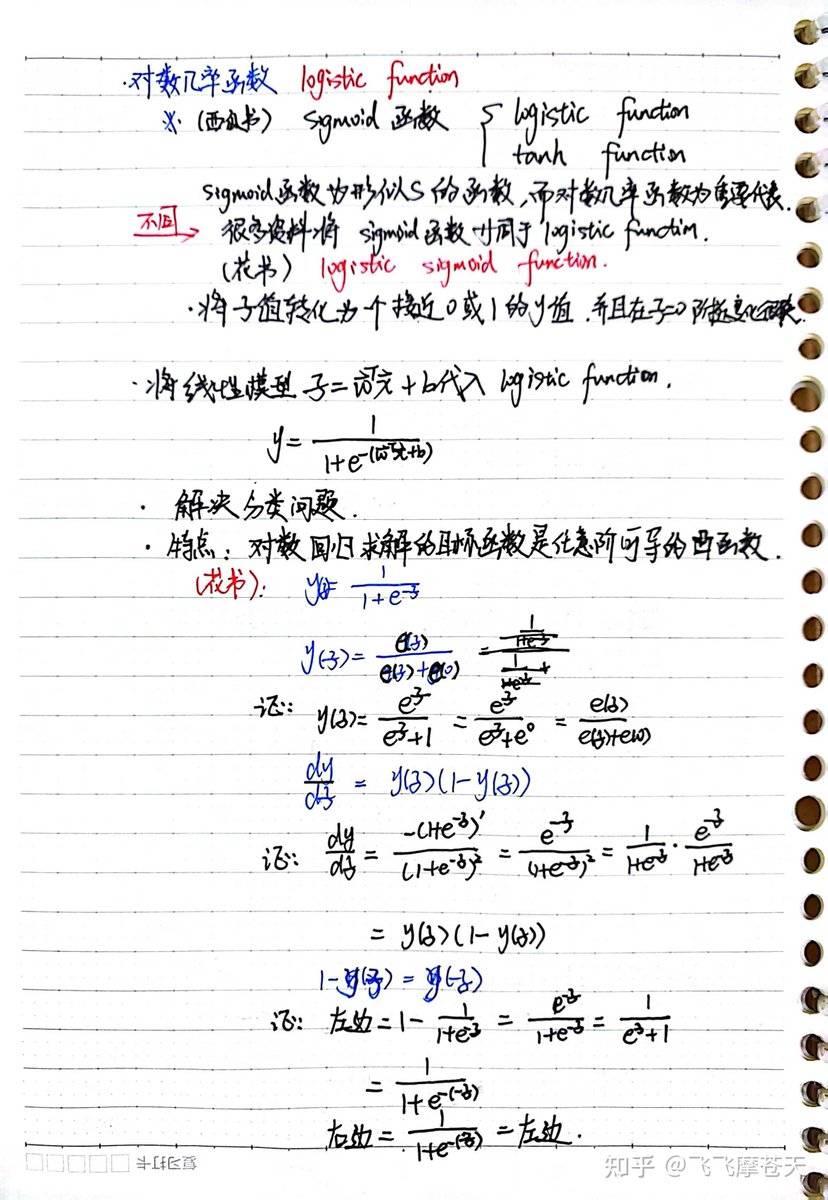 ·对数几率函数 logistic function
※ (西瓜书) sigmoid 函数 { logistic function
tanh function
sigmoid函数为形似S的函数,而对数几率函数为重要代表.
不同→ 很多资料将 sigmoid函数 等同于 logistic function.
(花书) logistic sigmoid function.
·将z值转化为一个接近0或1的y值 并且在z=0附近变化很快
·将线性模型 z=w^T x+b代入 logistic function.
y = 1/(1+e^-(w^T x+b))
· 解决分类问题.
· 特点: 对数回归求解的目标函数是任意阶可导的凸函数.
(花书): y = 1/(1+e^-z)
y(z) = e(z)/(e(z)+e(0)) =
证: y(z) = e^z/(e^z+1) = e^z/(e^z+e^0) = e(z)/(e(z)+e(0))
dy/dz = y(z)(1-y(z))
证: dy/dz = -(1+e^-z)'/(1+e^-z)^2 = e^-z/(1+e^-z)^2 = 1/(1+e^-z) · e^-z/(1+e^-z)
= y(z)(1-y(z))
1-y(z) = y(-z)
证: 左边=1- 1/(1+e^-z) = e^-z/(1+e^-z) = 1/(e^z+1)
= 1/(1+e^-(-z))
右边= 1/(1+e^-(-z)) =左边.
复习打卡
知乎 @飞飞摩苍天